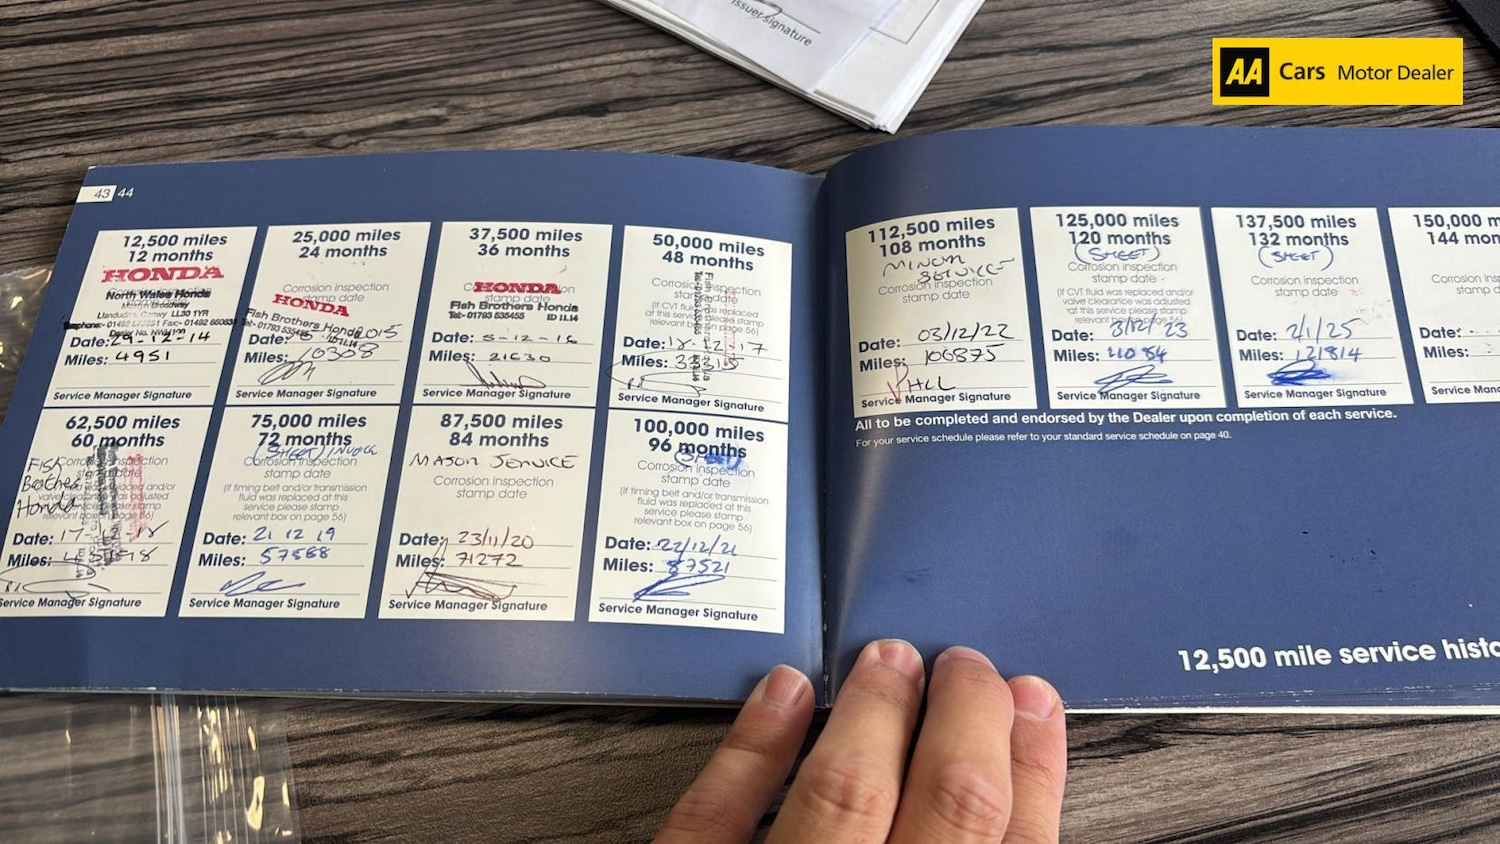 Issuer signature
AA Cars Motor Dealer
43 44
12,500 miles
12 months
HONDA
North Wales Honda
Llandudno, Conwy LL30 1YR
Date: 29-12-14
Miles: 4951
Service Manager Signature
25,000 miles
24 months
Corrosion inspection
stamp date
HONDA
Fish Brothers Honda
Date: 2015
Miles: 10308
Service Manager Signature
37,500 miles
36 months
HONDA
Fish Brothers Honda
Tel:- 01793 535455 ID 11.14
Date: 5-12-16
Miles: 21630
Service Manager Signature
50,000 miles
48 months
Corrosion inspection
stamp date
(If CVT fluid was replaced and/or
valve clearance was adjusted
at this service please stamp
relevant box on page 56)
Date: 18-12-17
Miles: 33315
Service Manager Signature
62,500 miles
60 months
Fish
Brothers
Honda
Date: 17-12-18
Miles:
Service Manager Signature
75,000 miles
72 months
(SHEET) INVOICE
Corrosion inspection
stamp date
(If timing belt and/or transmission
fluid was replaced at this
service please stamp
relevant box on page 56)
Date: 21 12 19
Miles: 57568
Service Manager Signature
87,500 miles
84 months
MAJOR SERVICE
Corrosion inspection
stamp date
Date: 23/11/20
Miles: 71272
Service Manager Signature
100,000 miles
96 months
(SHEET)
Corrosion inspection
stamp date
(If timing belt and/or transmission
fluid was replaced at this
service please stamp
relevant box on page 56)
Date: 22/12/21
Miles: 87521
Service Manager Signature
112,500 miles
108 months
MINOR
SERVICE
Corrosion inspection
stamp date
Date: 03/12/22
Miles: 106875
HCL
Service Manager Signature
125,000 miles
120 months
(SHEET)
Corrosion inspection
stamp date
(If CVT fluid was replaced and/or
valve clearance was adjusted
at this service please stamp
relevant box on page 56)
Date: 3/12/23
Miles: 11084
Service Manager Signature
137,500 miles
132 months
(SHEET)
Corrosion inspection
stamp date
Date: 2/1/25
Miles: 121814
Service Manager Signature
150,000 m
144 mon
Corrosion ins
stamp d
Date:
Miles:
Service Mana
All to be completed and endorsed by the Dealer upon completion of each service.
For your service schedule please refer to your standard service schedule on page 40.
12,500 mile service histo